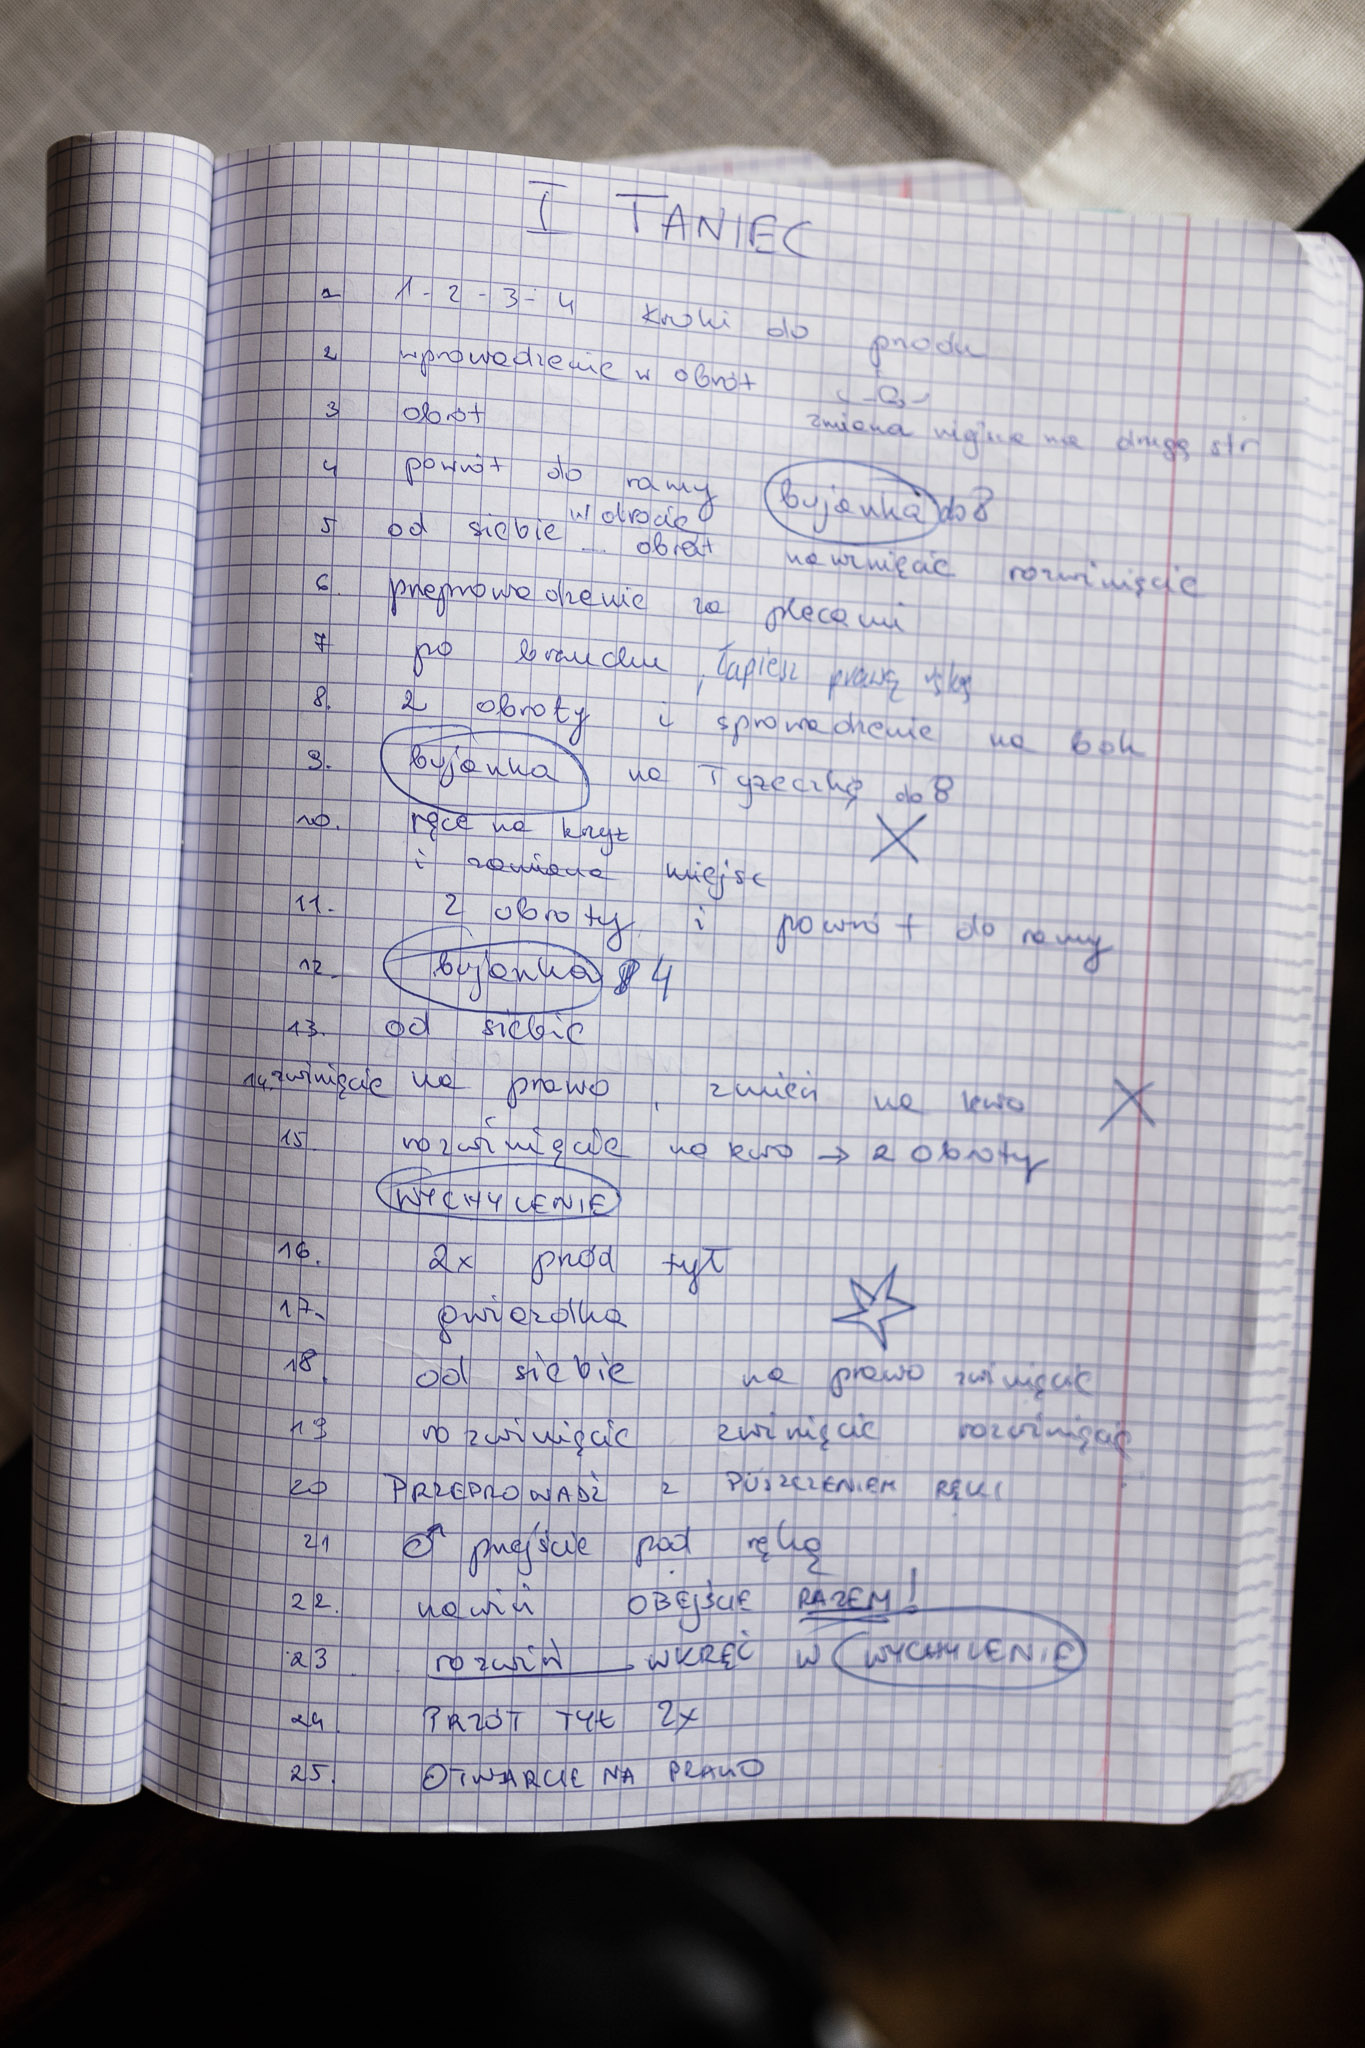 I TANIEC
1 1-2-3-4 kroki do przodu
2 wprowadzenie w obrót
3 obrót zmiana miejsc na drugą str
4 powrót do ramy bujanka do 8
5 od siebie w drocie obrót nawinięcie rozwinięcie
6 przeprowadzenie za plecami
7 po brzuchu, łapiesz prawą ręką
8. 2 obroty i sprowadzenie na bok
9. bujanka na łyżeczkę do 8
10. ręce na krzyż
i zamiana miejsc
11. 2 obroty i powrót do ramy
12. bujanka 4
13. od siebie
14. zwinięcie na prawo, zmień na lewo
15. rozwinięcie na lewo → 2 obroty
WYCHYLENIE
16. 2x przód tył
17. gwiazdka
18. od siebie na prawo zwinięcie
19 rozwinięcie zwinięcie rozwinięcie
20 PRZEPROWADŹ z PUSZCZENIEM RĘKI
21 ♂ przejście pod ręką
22. nawiń OBEJŚCIE RAZEM!
23 rozwiń WKRĘĆ W WYCHYLENIE
24 PRZÓT TYŁ 2X
25. OTWARCIE NA PRAWO